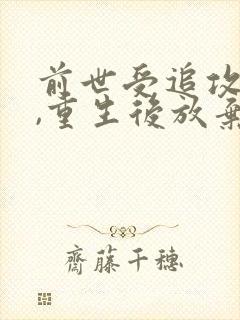 前世受追攻
,重生後放棄
齋藤千穗